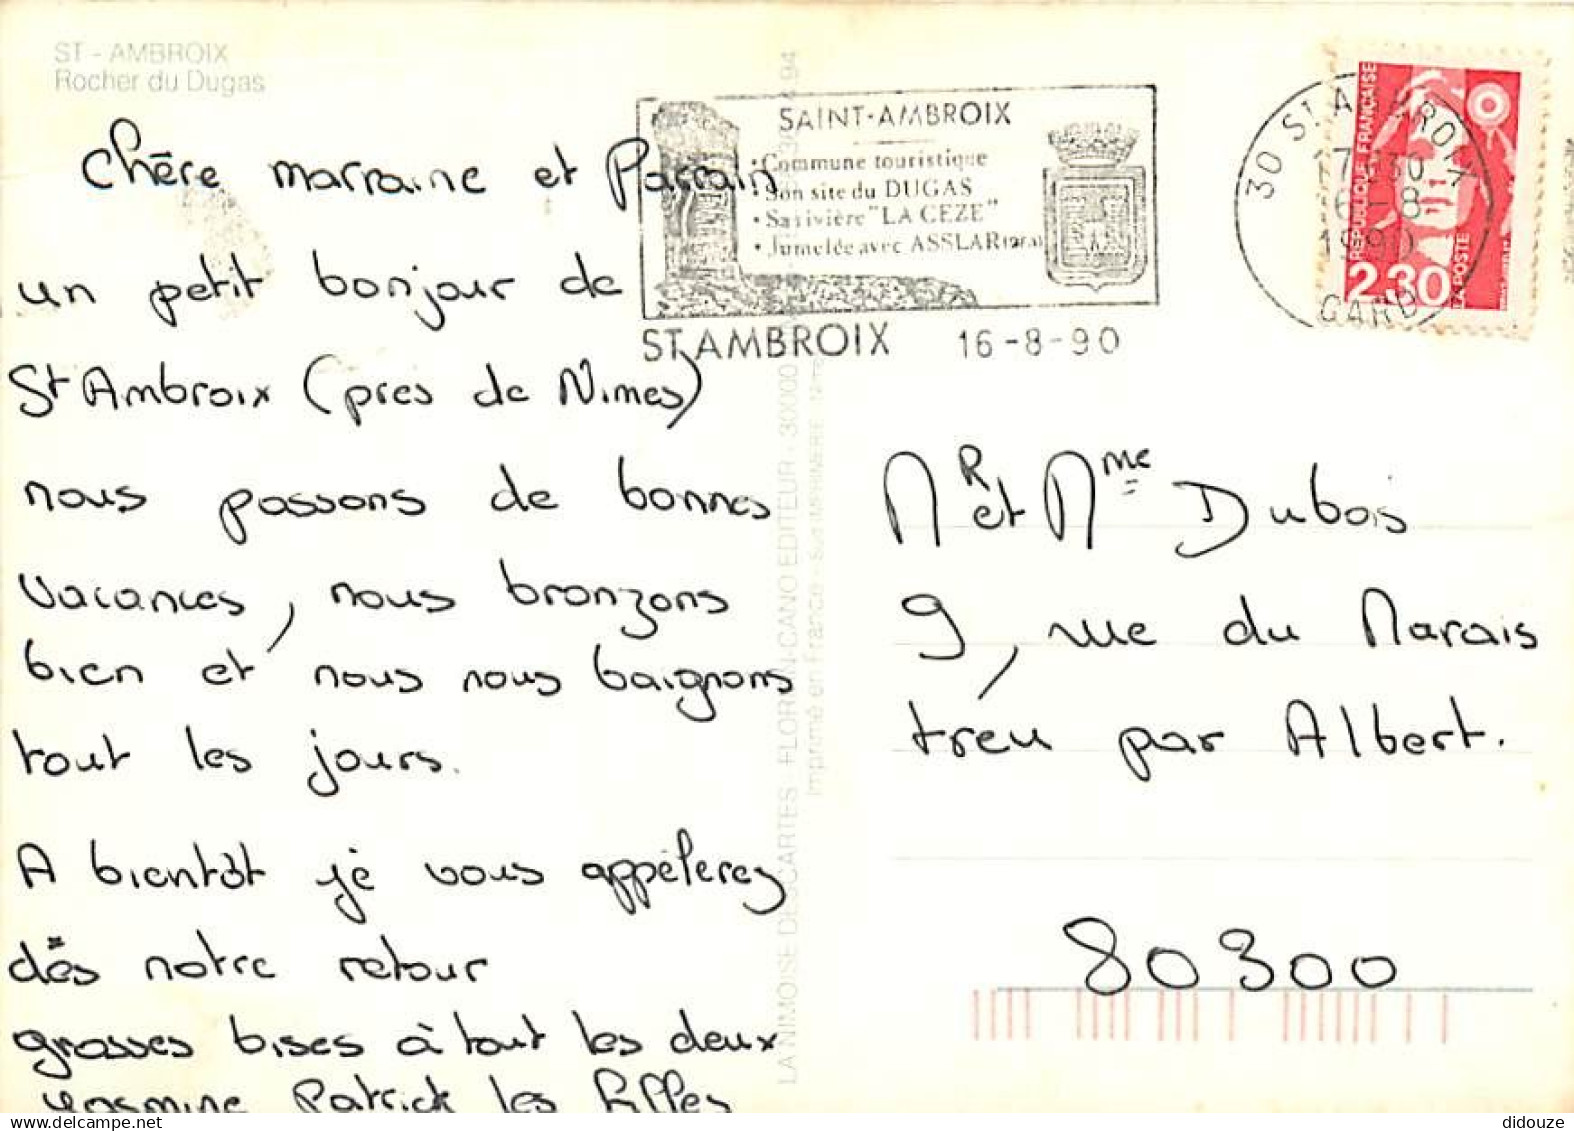 ST - AMBROIX
Rocher du Dugas
chère marraine et Parrain
un petit bonjour de
St Ambroix (près de Nîmes)
nous passons de bonnes
vacances, nous bronzons
bien et nous nous baignons
tout les jours.
A bientôt je vous appèlerez
dès notre retour
grosses bises à tout les deux
Yasmine Patrick les filles
SAINT-AMBROIX
• Commune touristique
• Son site du DUGAS
• Sa rivière "LA CEZE"
• Jumelée avec ASSLAR
ST AMBROIX 16-8-90
30 ST AMBROIX
17 30
16-8
1990
GARD
REPUBLIQUE FRANÇAISE
2.30
LA POSTE
LA NIMOISE DES CARTES - FLORIAN CANO EDITEUR - 30000
Imprimé en France -
94
MR et Mme Dubois
9, rue du Marais
treu par Albert.
80300
didouze